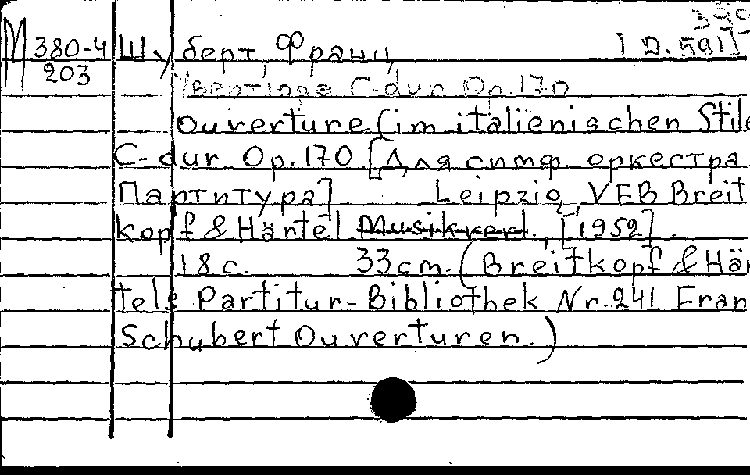 М 380-4 Шуберт, Франц [D.591]
203
[Увертюра C-dur Op.170
Ouverture (im italienischen Stile
C-dur Op.170 [Для симф. оркестра
Партитура] Leipzig, VEB Breit
kopf & Härtel Musikverl., [1952].
18 с. 33 cm. (Breitkopf & Här
tels Partitur-Bibliothek Nr. 241 Fran
Schubert Ouverturen.)